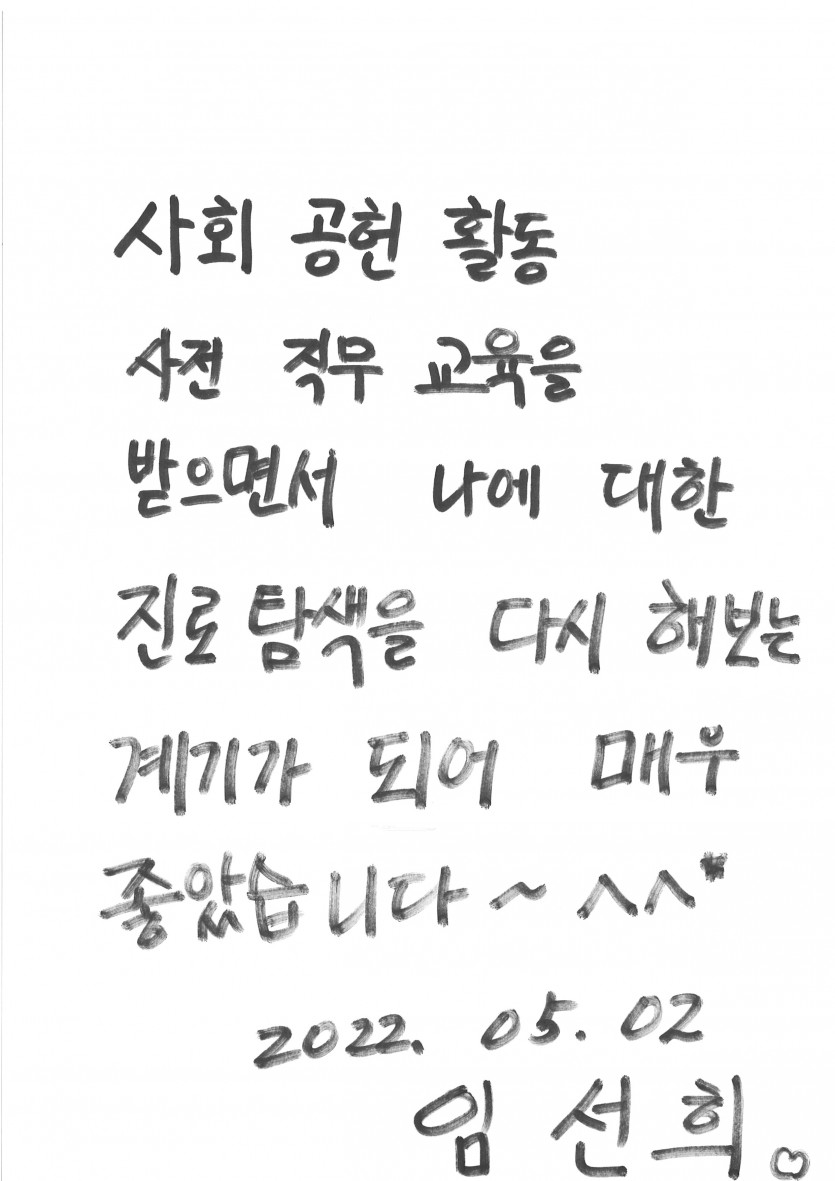 사회 공헌 활동
사전 직무 교육을
받으면서 나에 대한
진로 탐색을 다시 해보는
계기가 되어 매우
좋았습니다~ ^^*
2022. 05. 02
임선희.